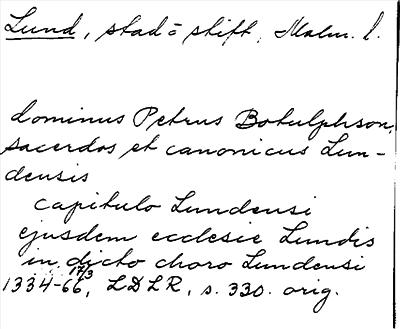 Lund, stad o stift, Malm. l.
dominus Petrus Botulphson,
sacerdos et canonicus Lun-
densis
capitulo Lundensi
ejusdem ecclesie Lundis
in dicto choro Lundensi
1334-66 17/3, LDLR, s. 330. orig.